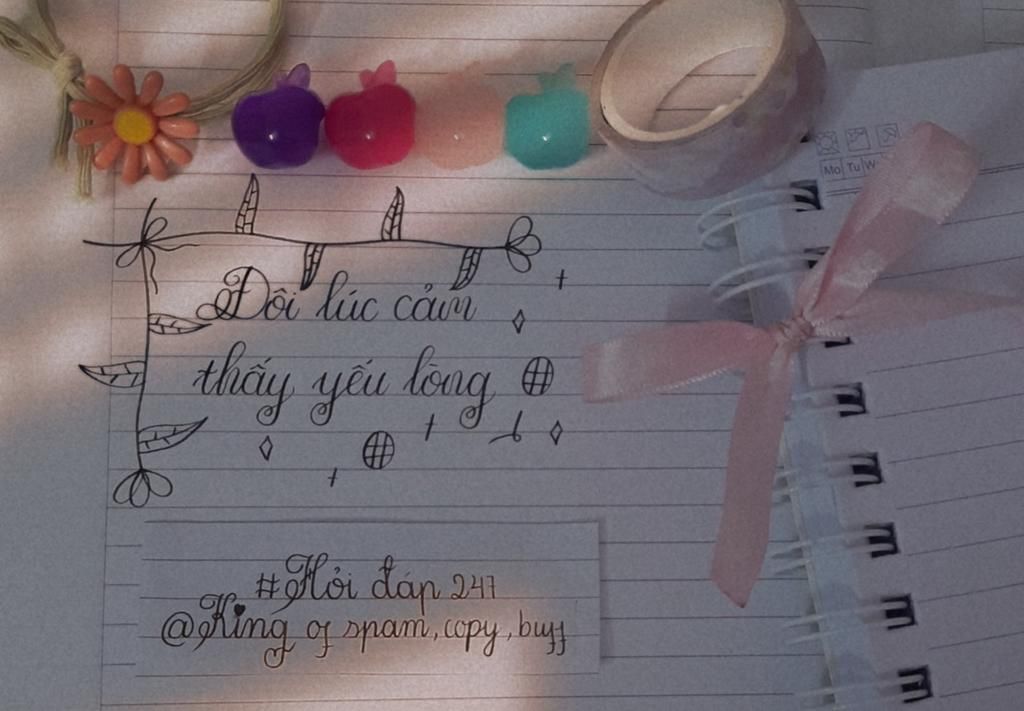 Mo Tu W
Đôi lúc cảm
thấy yếu lòng
#Hỏi đáp 247
@King of spam, copy, buff